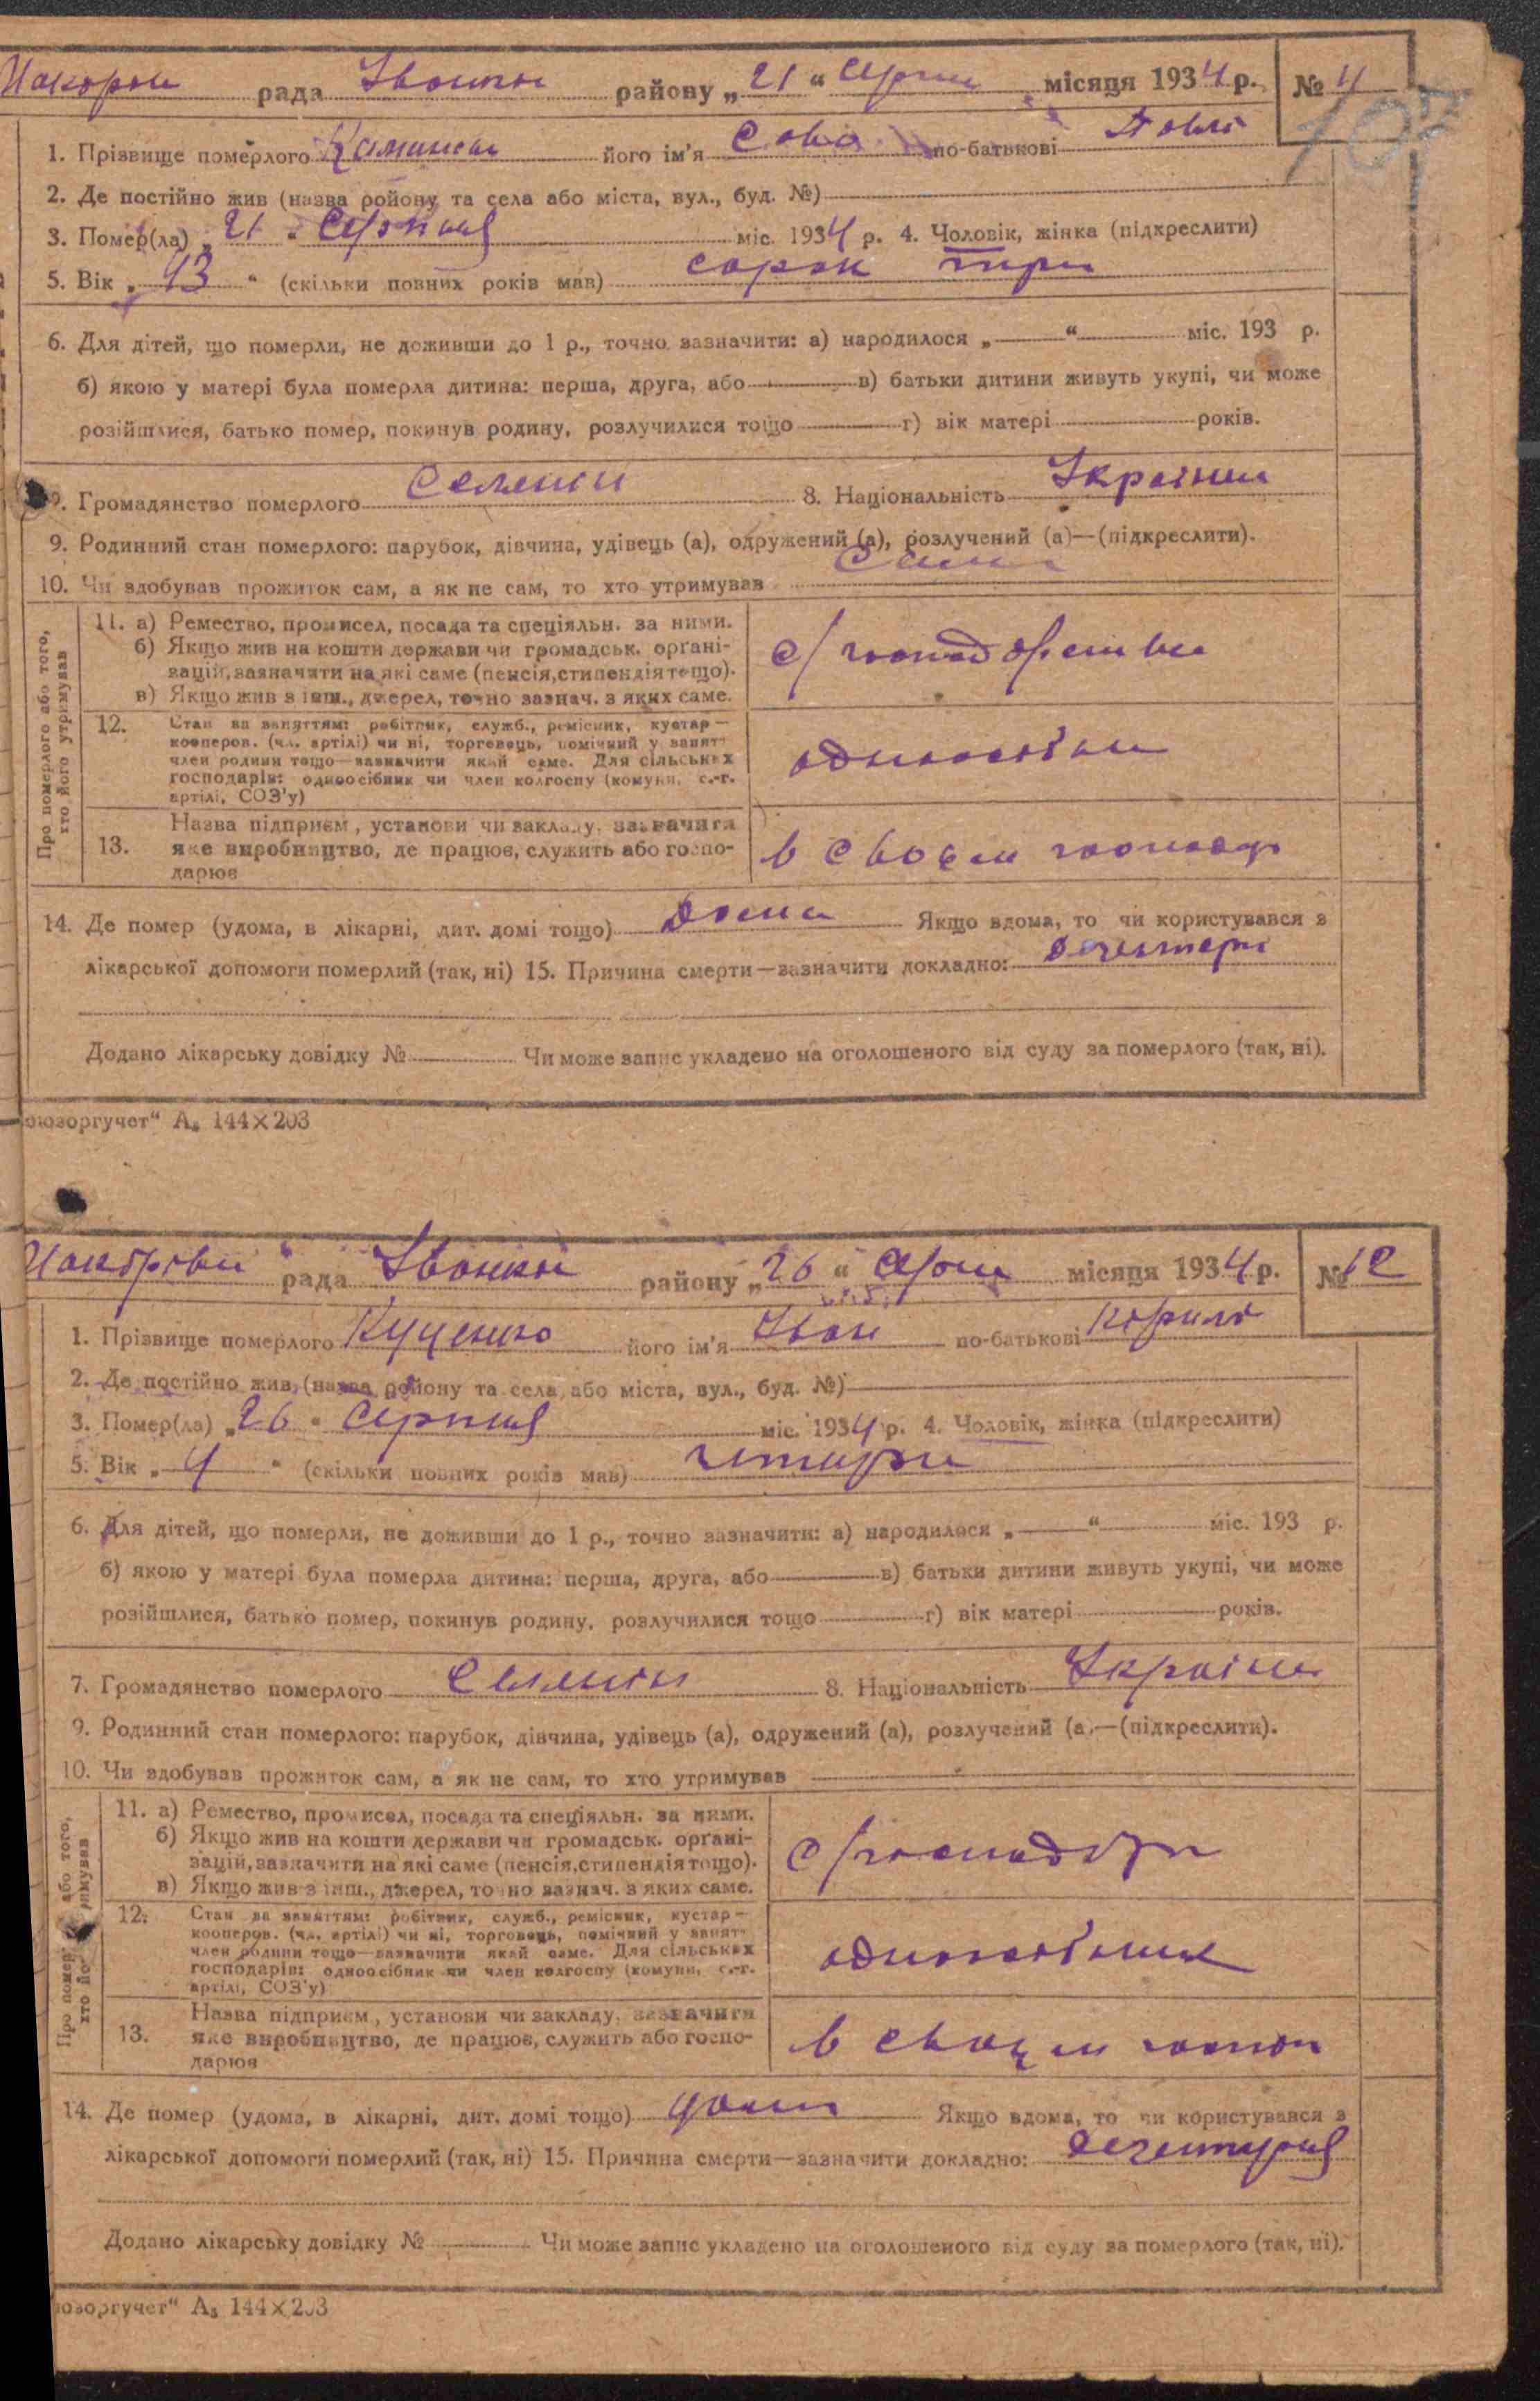 рада района „21“ Серпня місяця 1934 р. № 4
107
1. Прізвище померлого його ім'я Сава по-батькові Павло
2. Де постійно жив (назва району та села або міста, вул., буд. №)
3. Помер(ла) „21“ Серпня міс. 1934 р. 4. Чоловік, жінка (підкреслити)
5. Вік „43“ (скільки повних років мав) сорок три
6. Для дітей, що померли, не доживши до 1 р., точно зазначити: а) народилося „ “ міс. 193 р.
б) якою у матері була померла дитина: перша, друга, або в) батьки дитини живуть укупі, чи може
розійшлися, батько помер, покинув родину, розлучилися тощо г) вік матері років.
7. Громадянство померлого Селянин 8. Національність
9. Родинний стан померлого: парубок, дівчина, удівець (а), одружений (а), розлучений (а)—(підкреслити).
10. Чи здобував прожиток сам, а як не сам, то хто утримував
Про померлого або того, хто його утримував
11. а) Ремество, промисел, посада та спеціяльн. за ними.
б) Якщо жив на кошти держави чи громадськ. орґані-
зацій, зазначити на які саме (пенсія, стипендія тощо).
в) Якщо жив з інш., джерел, точно зазнач. з яких саме.
12. Стан за заняттям: робітник, служб., ремісник, кустар—
кооперов. (чл. артілі) чи ні, торговець, помічний у занят-
член родини тощо—зазначити який саме. Для сільських
господарів: одноосібник чи член колгоспу (комуни, с.-г.
артілі, СОЗ'у)
13. Назва підприєм., установи чи закладу, зазначити
яке виробництво, де працює, служить або госпо-
дарює
в своєм
14. Де помер (удома, в лікарні, дит. домі тощо) дома Якщо вдома, то чи користувався з
лікарської допомоги померлий (так, ні) 15. Причина смерти—зазначити докладно:
Додано лікарську довідку № Чи може запис укладено на оголошеного від суду за померлого (так, ні).
оюзоргучет“ А₅ 144×203
рада району „26“ Серпня місяця 1934 р. № 12
1. Прізвище померлого Куценко його ім'я Іван по-батькові
2. Де постійно жив (назва району та села або міста, вул., буд. №)
3. Помер(ла) „26“ Серпня міс. 1934 р. 4. Чоловік, жінка (підкреслити)
5. Вік „4“ (скільки повних років мав) чотири
6. Для дітей, що померли, не доживши до 1 р., точно зазначити: а) народилося „ “ міс. 193 р.
б) якою у матері була померла дитина: перша, друга, або в) батьки дитини живуть укупі, чи може
розійшлися, батько помер, покинув родину, розлучилися тощо г) вік матері років.
7. Громадянство померлого Селянин 8. Національність
9. Родинний стан померлого: парубок, дівчина, удівець (а), одружений (а), розлучений (а)—(підкреслити).
10. Чи здобував прожиток сам, а як не сам, то хто утримував
11. а) Ремество, промисел, посада та спеціяльн. за ними.
б) Якщо жив на кошти держави чи громадськ. орґані-
зацій, зазначити на які саме (пенсія, стипендія тощо).
в) Якщо жив з інш., джерел, точно зазнач. з яких саме.
12. Стан за заняттям: робітник, служб., ремісник, кустар—
кооперов. (чл. артілі) чи ні, торговець, помічний у занят-
член родини тощо—зазначити який саме. Для сільських
господарів: одноосібник чи член колгоспу (комуни, с.-г.
артілі, СОЗ'у)
одноосібник
13. Назва підприєм., установи чи закладу, зазначити
яке виробництво, де працює, служить або госпо-
дарює
в своєм
14. Де помер (удома, в лікарні, дит. домі тощо) дома Якщо вдома, то чи користувався з
лікарської допомоги померлий (так, ні) 15. Причина смерти—зазначити докладно:
Додано лікарську довідку № Чи може запис укладено на оголошеного від суду за померлого (так, ні).
юзоргучет“ А₅ 144×203